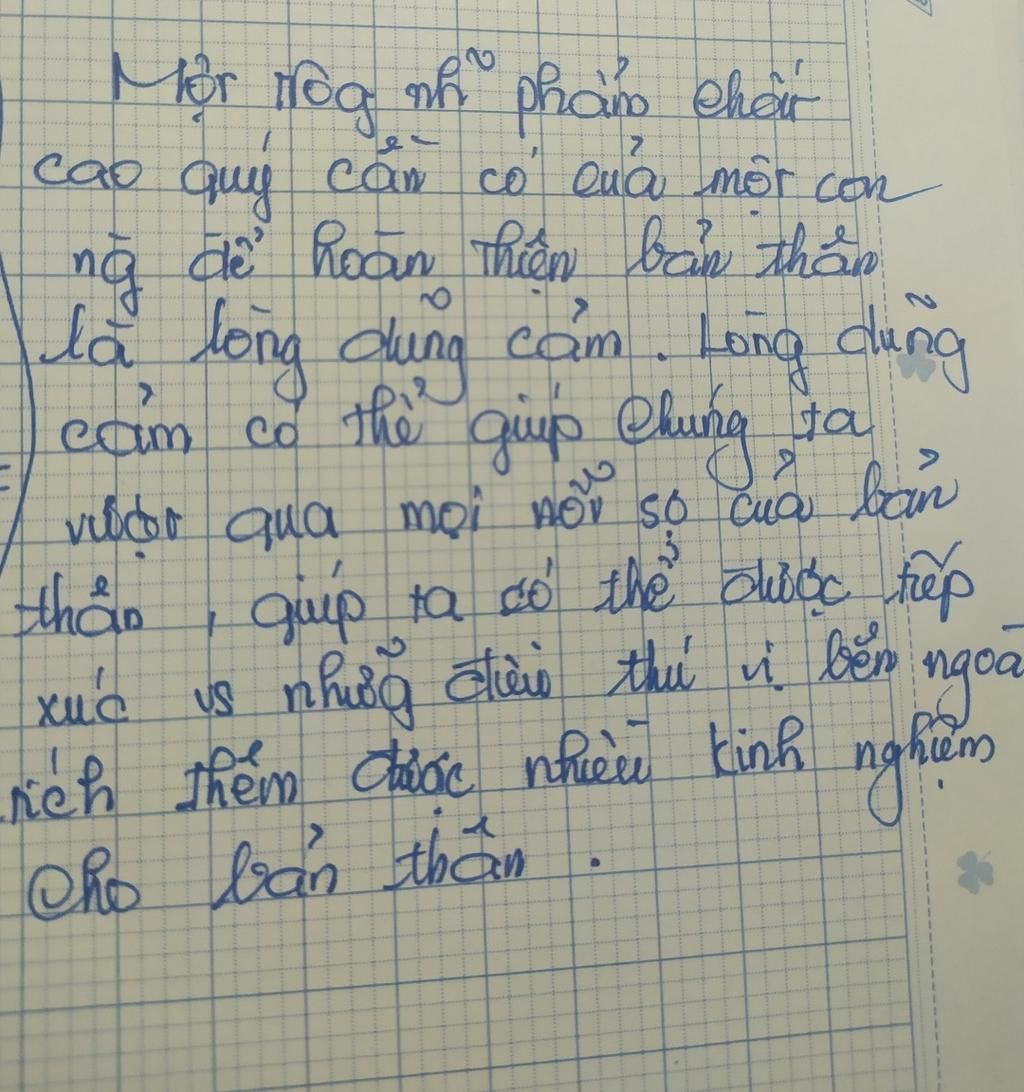 Một trog nhữ phẩm chất
cao quý cần có của một con
ng để hoàn thiện bản thân
là lòng dũng cảm. Lòng dũng
cảm có thể giúp chúng ta
vượt qua mọi nỗi sợ của bản
thân, giúp ta có thể được tiếp
xúc vs những điều thú vị bên ngoà
tích thêm được nhiều kinh nghiệm
cho bản thân.